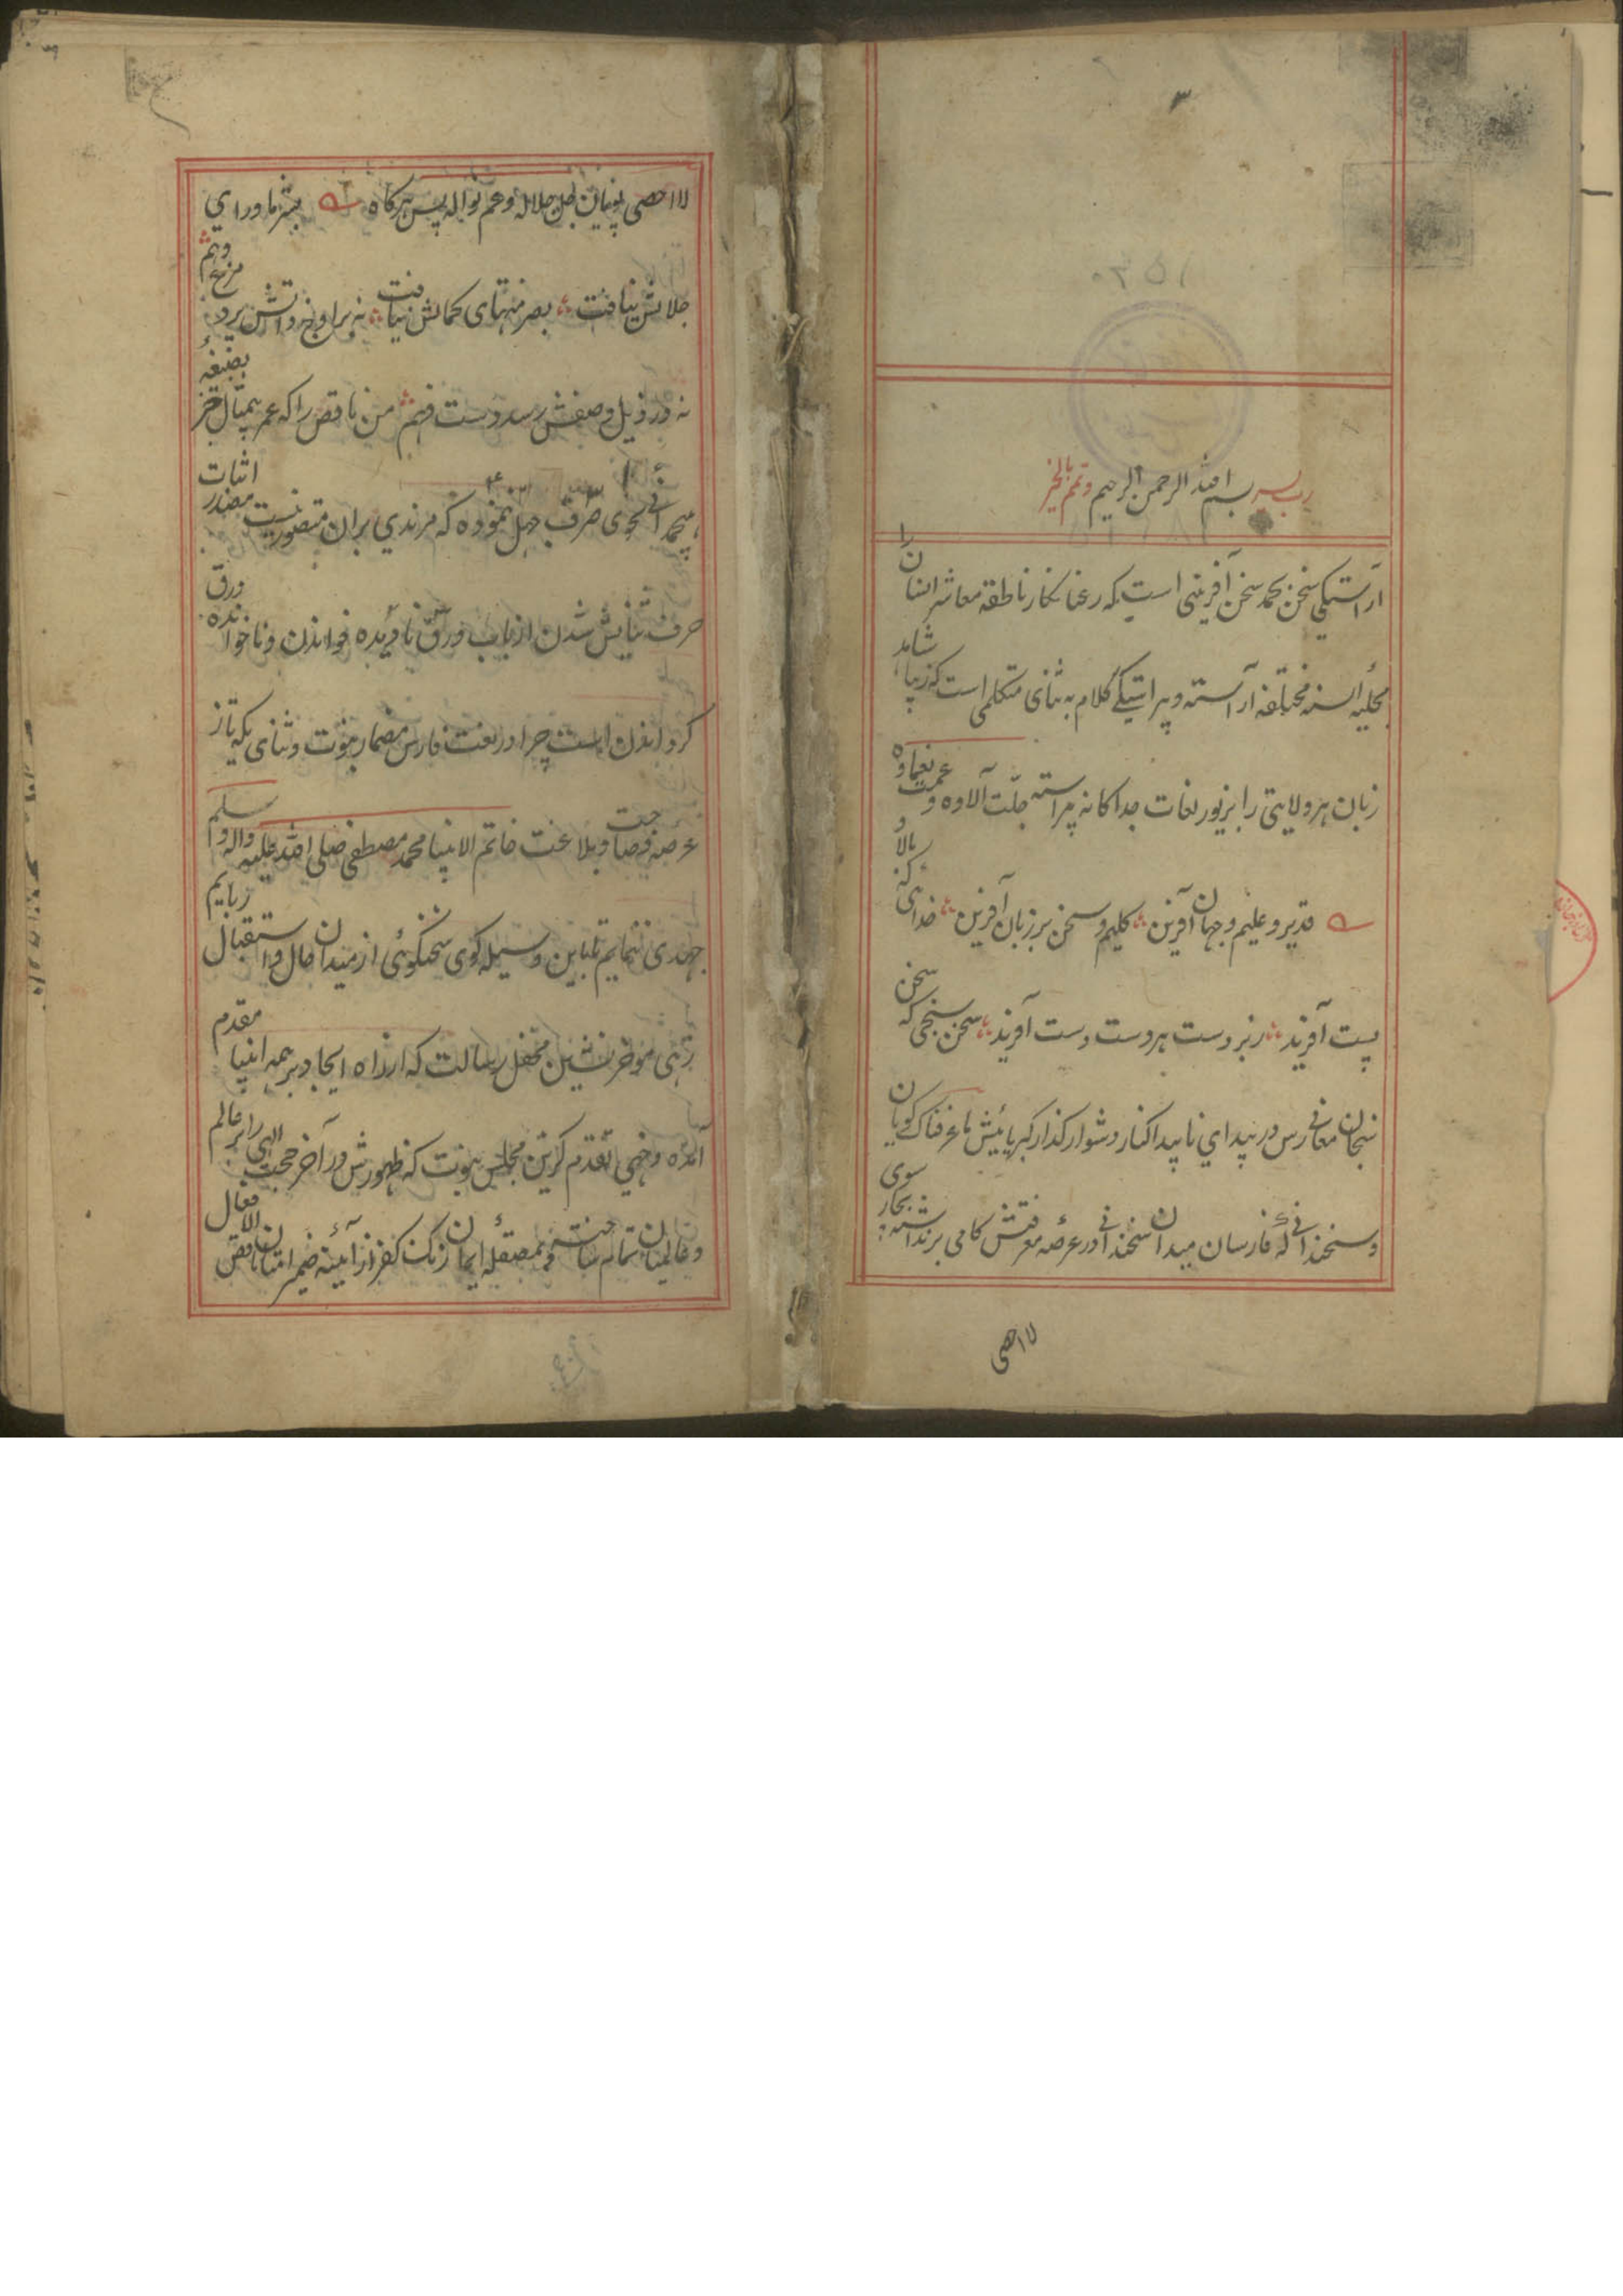 ۳
رب یسر بسم الله الرحمن الرحیم وتمم بالخیر
آراستیکی سخن بحمد سخن آفرینی است که رعنا نکار ناطقه معاشر انسان را
بحلیهٔ السنه مختلفه آراسته و پیراستیکے کلام به ثنای متکلمی است که زیبا شاهد
زبان هر ولایتی را بزیور لغات جداکانه پیراسته جلّت آلاوه و عمت نعماوه
قدیر و علیم و جهان آفرین کلیم و سخن بر زبان آفرین خدای که بالا و
پست آفرید زبردست هر دست دست آفرید سخن سنجی که سخن
سنجان معانی رس در بیدای ناپیدا کنار دشوار کذار کبریائیش ماعرفناک کویان
و سخندانی که فارسان میدان سخندانی در عرصهٔ معرفتش کامی برنداشته بجار سوی
لااحصی
لااحصی پویان جل جلاله و عم نواله پس هرکاه بشر ماورای
جلالش نیافت بصر منتهای کمالش نیافت نه بر اوج ذواتش پرد مرغ وهم
نه در ذیل وصفش رسد دست فهم من ناقص را که عمر بیمثال جز بصیغهٔ
هیچمدانی بجوی صرف جهل ننموده که مزیدی بران متصور نیست مصدر اثبات
حرف ثنایش شدن از باب ورق نادیده خواندن و ناخوانده ورق
کردانیدن است چرا در نعت فارس مضمار نبوت و ثنای یکه تاز
عرصه فصاحت و بلاغت خاتم الانبیا محمد مصطفی صلی الله علیه واله وسلم
جهدی ننمایم تا باین وسیله کوی سخنکوئی از میدان حال و استقبال ربایم
زهی موخر نشین محفل رسالت که از راه ایجاد بر همه انبیا مقدم
آمده و خهی تقدم کزین مجلس نبوت که ظهورش در آخر حجت الهی را بر عالم
و عالمیان تمام ساخته و بمصقله ایمان زنک کفر از آئینه ضمیر امتیان ناقص الافعال